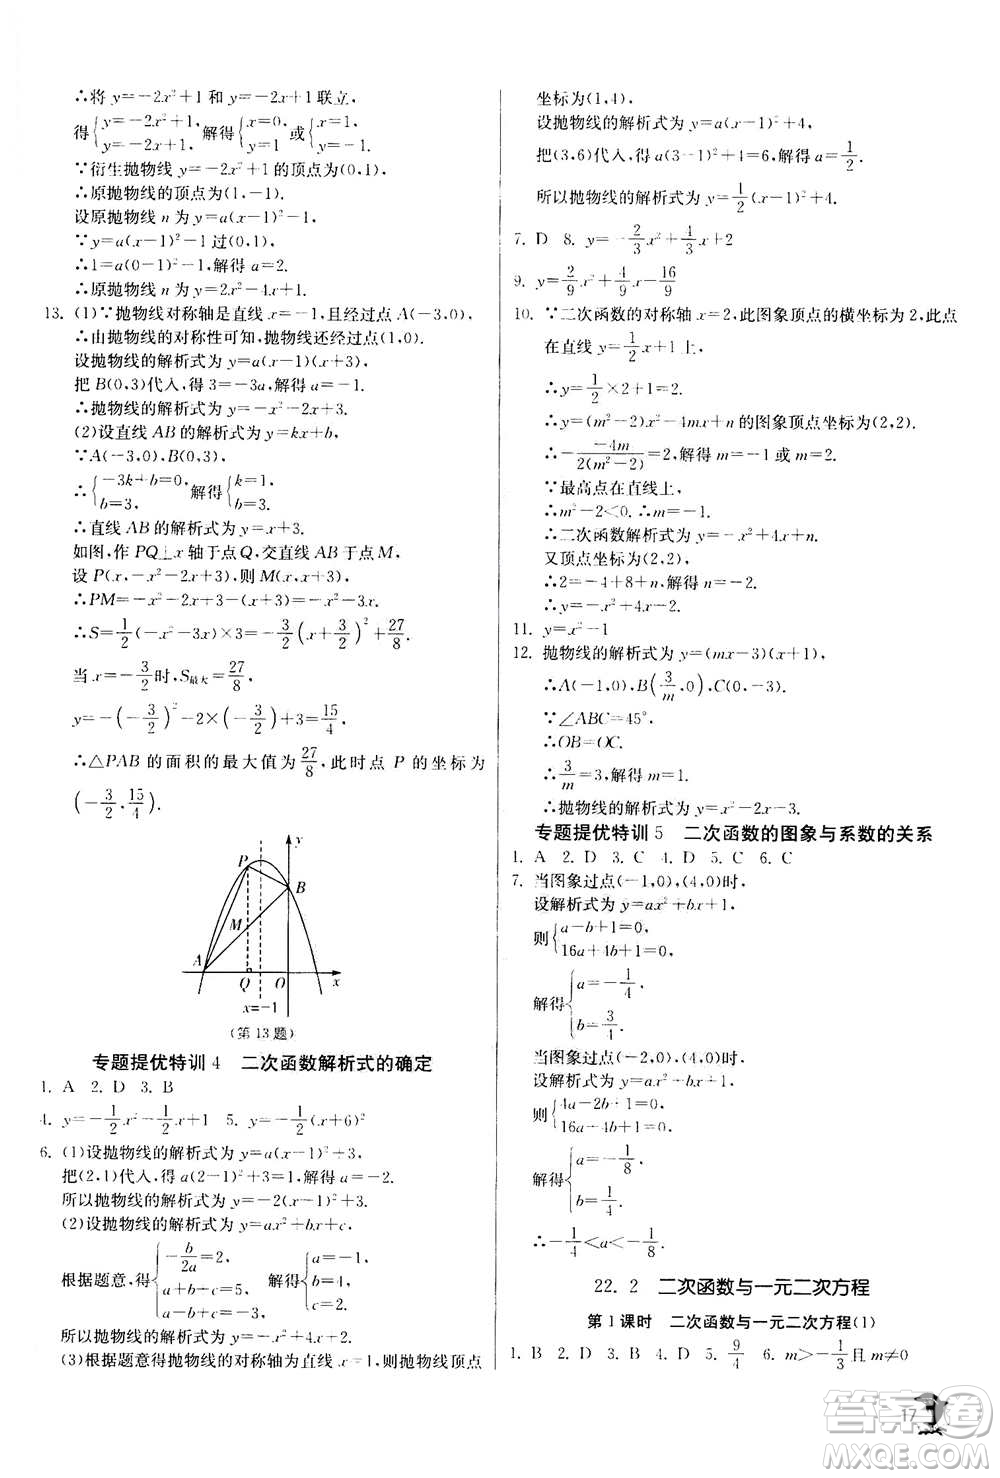 ∴将 y=−2x²+1 和 y=−2x+1联立,
得{y=−2x²+1, y=−2x+1, 解得{x=0, y=1 或{x=1, y=−1.
∵衍生抛物线 y=−2x²+1 的顶点为(0,1),
∴原抛物线的顶点为(1,−1).
设原抛物线 n 为 y=a(x−1)²−1,
∵y=a(x−1)²−1过(0,1),
∴1=a(0−1)²−1,解得 a=2.
∴原抛物线 n 为 y=2x²−4x+1.
13. (1)∵抛物线对称轴是直线 x=−1,且经过点 A(−3,0),
∴由抛物线的对称性可知,抛物线还经过点(1,0).
设抛物线的解析式为 y=a(x−1)(x+3).
把 B(0,3)代入,得 3=−3a,解得 a=−1.
∴抛物线的解析式为 y=−x²−2x+3.
(2)设直线 AB 的解析式为 y=kx+b,
∵A(−3,0),B(0,3),
∴{−3k+b=0, b=3. 解得{k=1, b=3.
∴直线 AB 的解析式为 y=x+3.
如图,作 PQ⊥x 轴于点 Q,交直线 AB 于点 M,
设 P(x,−x²−2x+3),则 M(x,x+3).
∴PM=−x²−2x+3−(x+3)=−x²−3x.
∴S=1/2(−x²−3x)×3=−3/2(x+3/2)²+27/8
当 x=−3/2时,S最大=27/8,
y=−(−3/2)²−2×(−3/2)+3=15/4,
∴△PAB 的面积的最大值为27/8,此时点 P 的坐标为
(−3/2,15/4).
P y B M A Q O x
x=−1
(第13题)
专题提优特训 4 二次函数解析式的确定
1. A 2. D 3. B
4. y=−1/2x²−1/2x+1 5. y=−1/2(x+6)²
6. (1)设抛物线的解析式为 y=a(x−1)²+3,
把(2,1)代入,得 a(2−1)²+3=1,解得 a=−2.
所以抛物线的解析式为 y=−2(x−1)²+3.
(2)设抛物线的解析式为 y=ax²+bx+c,
根据题意,得{−b/2a=2, a+b+c=0, c=5. 解得{a=1, b=−4, c=3.
所以抛物线的解析式为 y=x²−4x+3.
(3)根据题意得抛物线的对称轴为直线 x=1,抛物线顶点
坐标为(1,4),
设抛物线的解析式为 y=a(x−1)²+4,
把(3,6)代入,得 a(3−1)²+4=6,解得 a=1/2.
所以抛物线的解析式为 y=1/2(x−1)²+4.
7. D 8. y=−2/3x²+1/3x+2
9. y=2/9x²+4/9x−16/9
10. ∵二次函数的对称轴 x=2,此图象顶点的横坐标为2,此点
在直线 y=1/2x+1上,
∴y=1/2×2+1=2.
∴y=(m²−2)x²−4mx+n 的图象顶点坐标为(2,2).
∴−−4m/2(m²−2)=2,解得 m=−1或 m=2.
∵最高点在直线上,
∴m²−2<0.∴m=−1.
∴二次函数解析式为 y=−x²+4x+n.
又顶点坐标为(2,2),
∴2=−4+8+n,解得 n=−2.
∴y=−x²+4x−2.
11. y=x²−1
12. 抛物线的解析式为 y=(mx−3)(x+1),
∴A(−1,0),B(3/m,0),C(0,−3).
∵∠ABC=45°,
∴OB=OC.
∴3/m=3,解得 m=1.
∴抛物线的解析式为 y=x²−2x−3.
专题提优特训 5 二次函数的图象与系数的关系
1. A 2. D 3. C 4. D 5. C 6. C
7. 当图象过点(−1,0),(4,0)时,
设解析式为 y=ax²+bx+1,
则{a−b+1=0, 16a+4b+1=0.
解得{a=−1/4, b=3/4.
当图象过点(−2,0),(4,0)时,
设解析式为 y=ax²+bx+1,
则{4a−2b+1=0, 16a+4b+1=0.
解得{a=−1/8, b=1/4.
∴−1/4<a<−1/8.
22. 2 二次函数与一元二次方程
第1课时 二次函数与一元二次方程(1)
1. B 2. D 3. D 4. D 5. 9/4 6. m>−1/3且 m≠0
17
答案圈
MXQE.COM